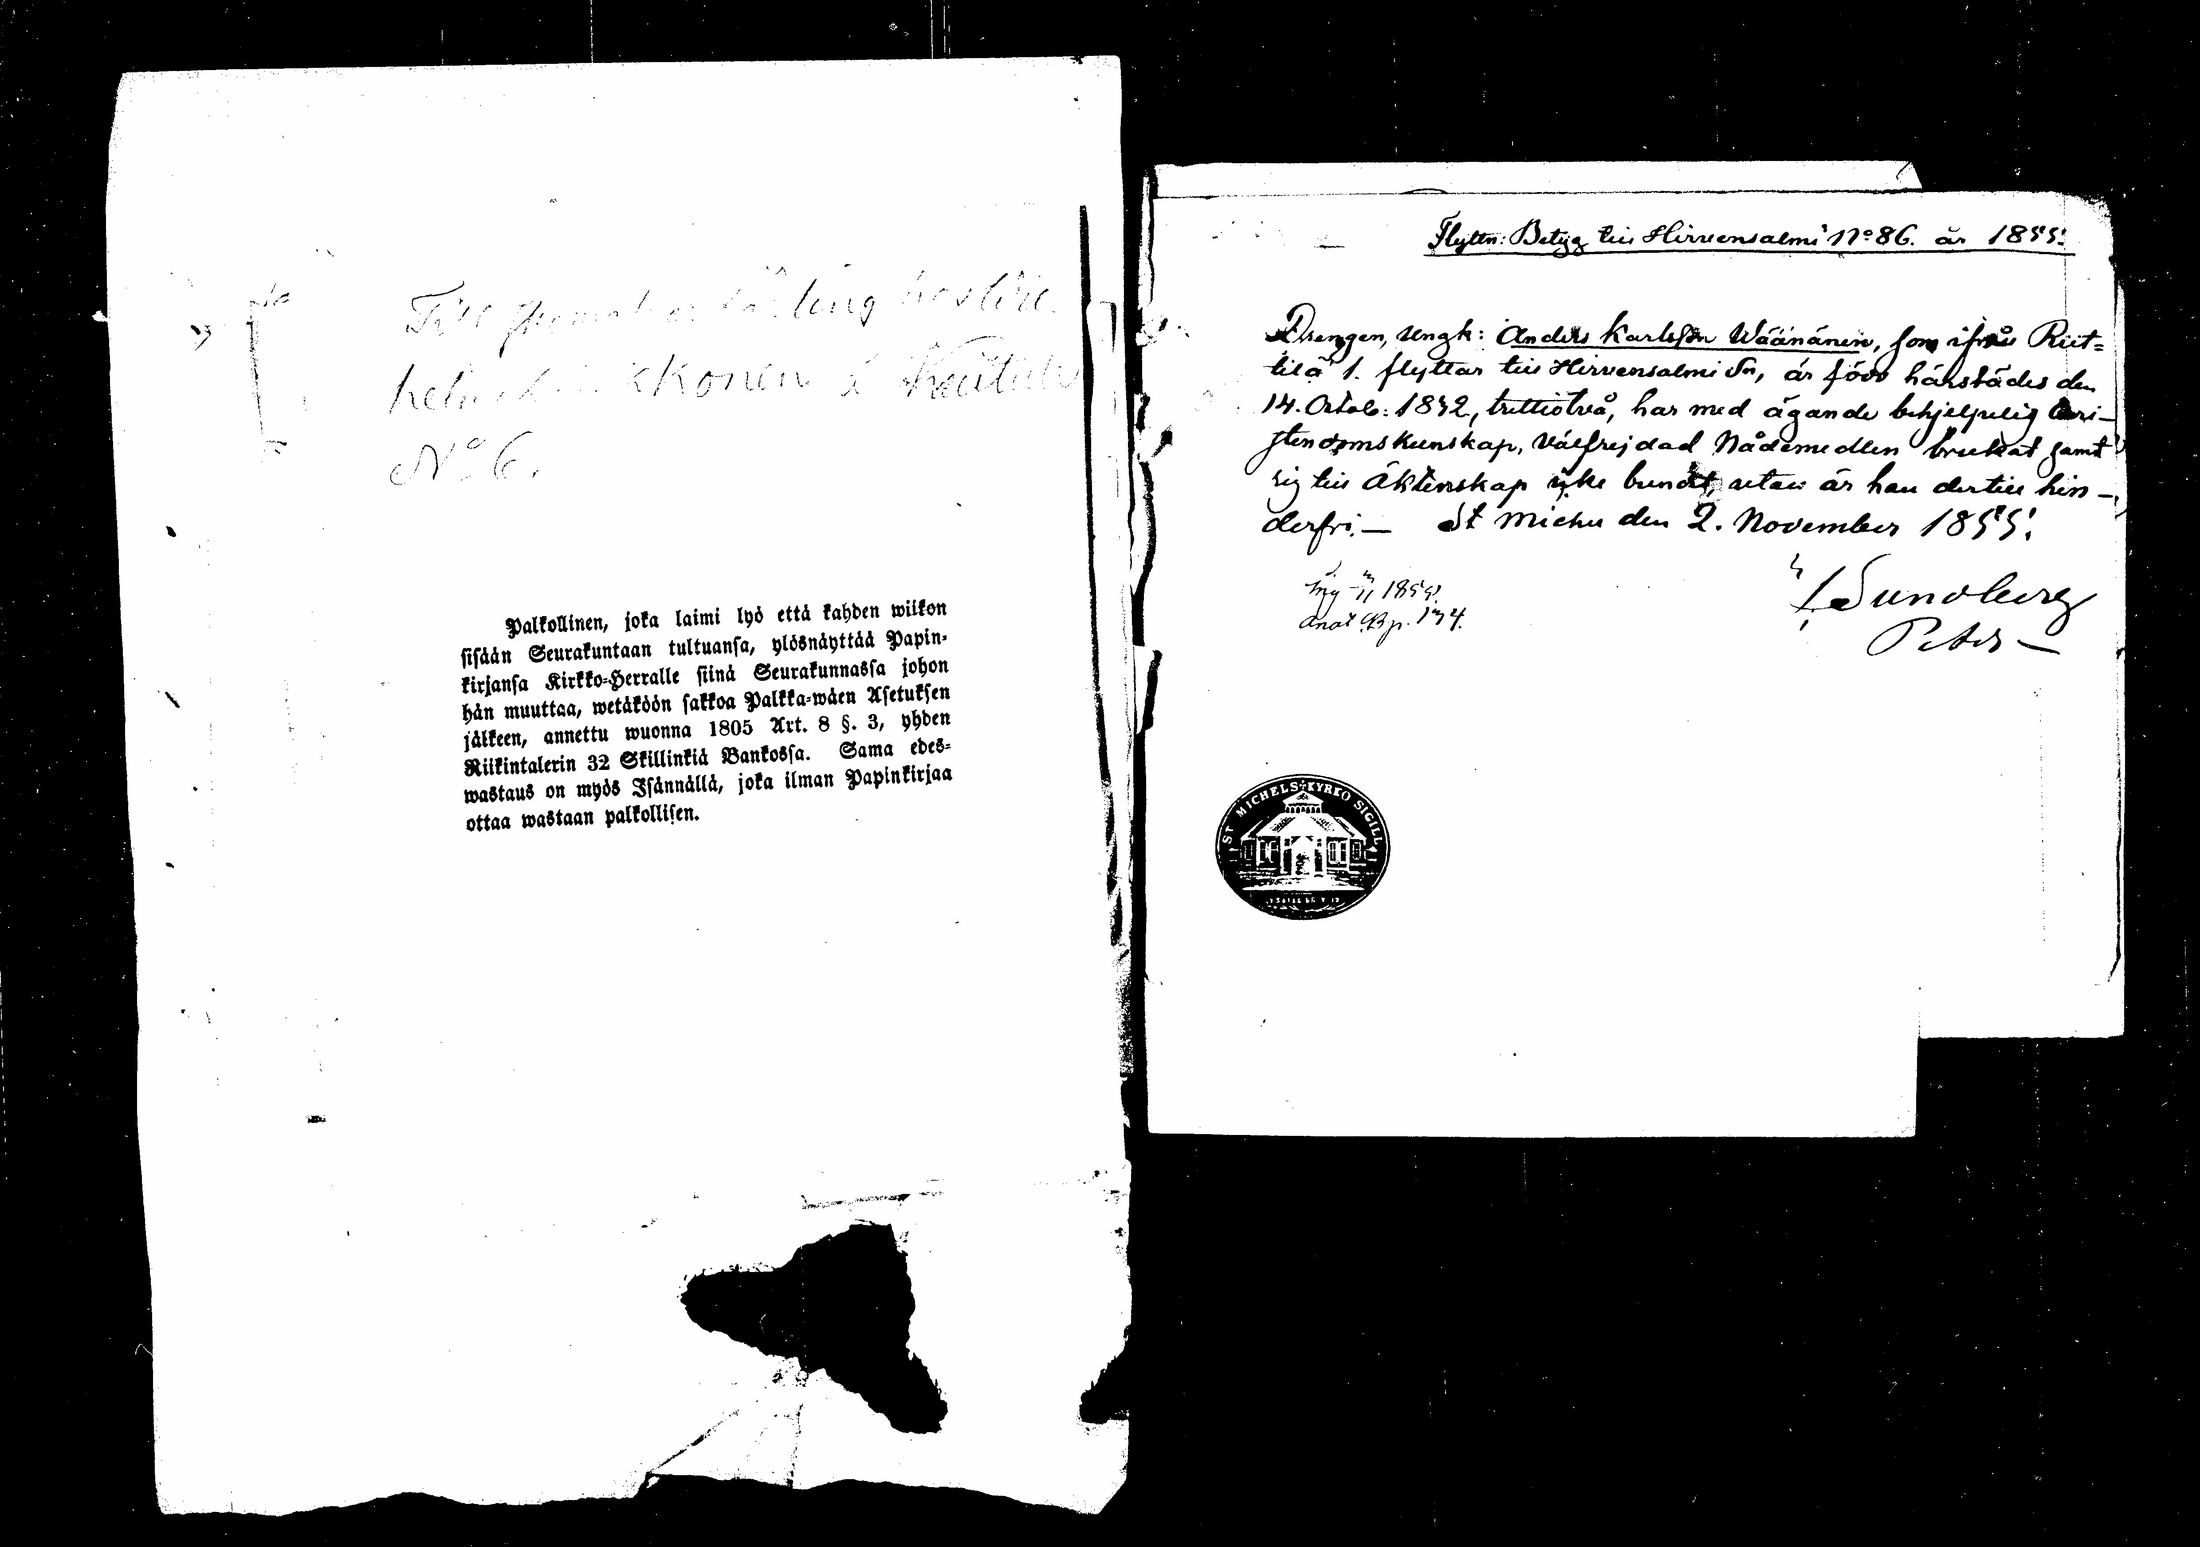 Till
konen å
No 6.
Palkollinen, joka laimi lyö että kahden wiikon
sisään Seurakuntaan tultuansa, ylösnäyttää Papin-
kirjansa Kirkko-Herralle siinä Seurakunnassa johon
hän muuttaa, wetäköön sakkoa Palkka-wäen Asetuksen
jälkeen, annettu wuonna 1805 Art. 8 §. 3, yhden
Riikintalerin 32 Skillinkiä Bankossa. Sama edes-
wastaus on myös Isännällä, joka ilman Papinkirjaa
ottaa wastaan palkollisen.
Flyttn: Betyg till Hirvensalmi No 86. år 1855.
Drengen, ungk: Anders Karlsson Wäänänen, som ifrån Riit=
tilä 1. flyttar till Hirvensalmi Sn, är född härstädes den
14. Octob: 1832, trettiotvå, har med ägande behjelpelig Cri-
stendomskunskap, välfrejdad Nådemedlen brukat samt
sig till Äktenskap icke bundit, utan är han dertill hin-
derfri. — St Michel den 2. November 1855.
Sundberg
1855.
p. 134.
ST MICHELS KYRKO SIGILL